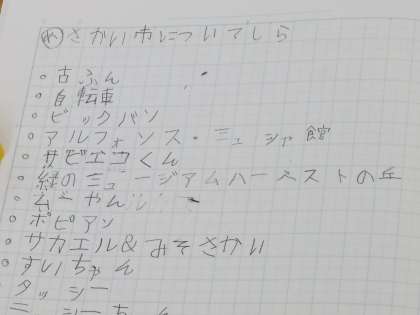 めさかい市についてしら
・古ふん
・自転車
・ビックバン
・アルフォンス・ミュシャ館
・サビエコくん
・緑のミュージアムハーベストの丘
・ムーやん
・ポピアン
・サカエル&みそさかい
・すいちゃん
・タッシー
ミーちゃん